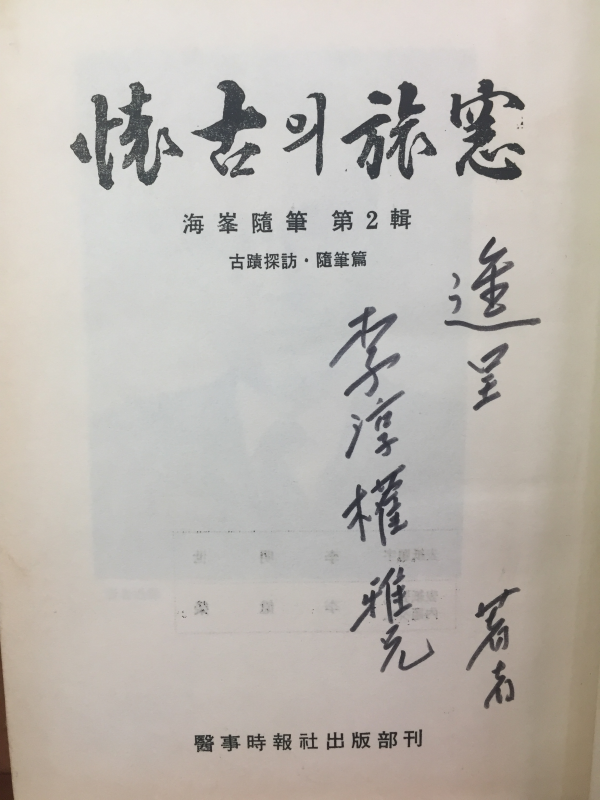 懷古의旅窓
海峯隨筆 第2輯
古蹟探訪·隨筆篇
進呈 著者
李淳權 雅兄
醫事時報社出版部刊